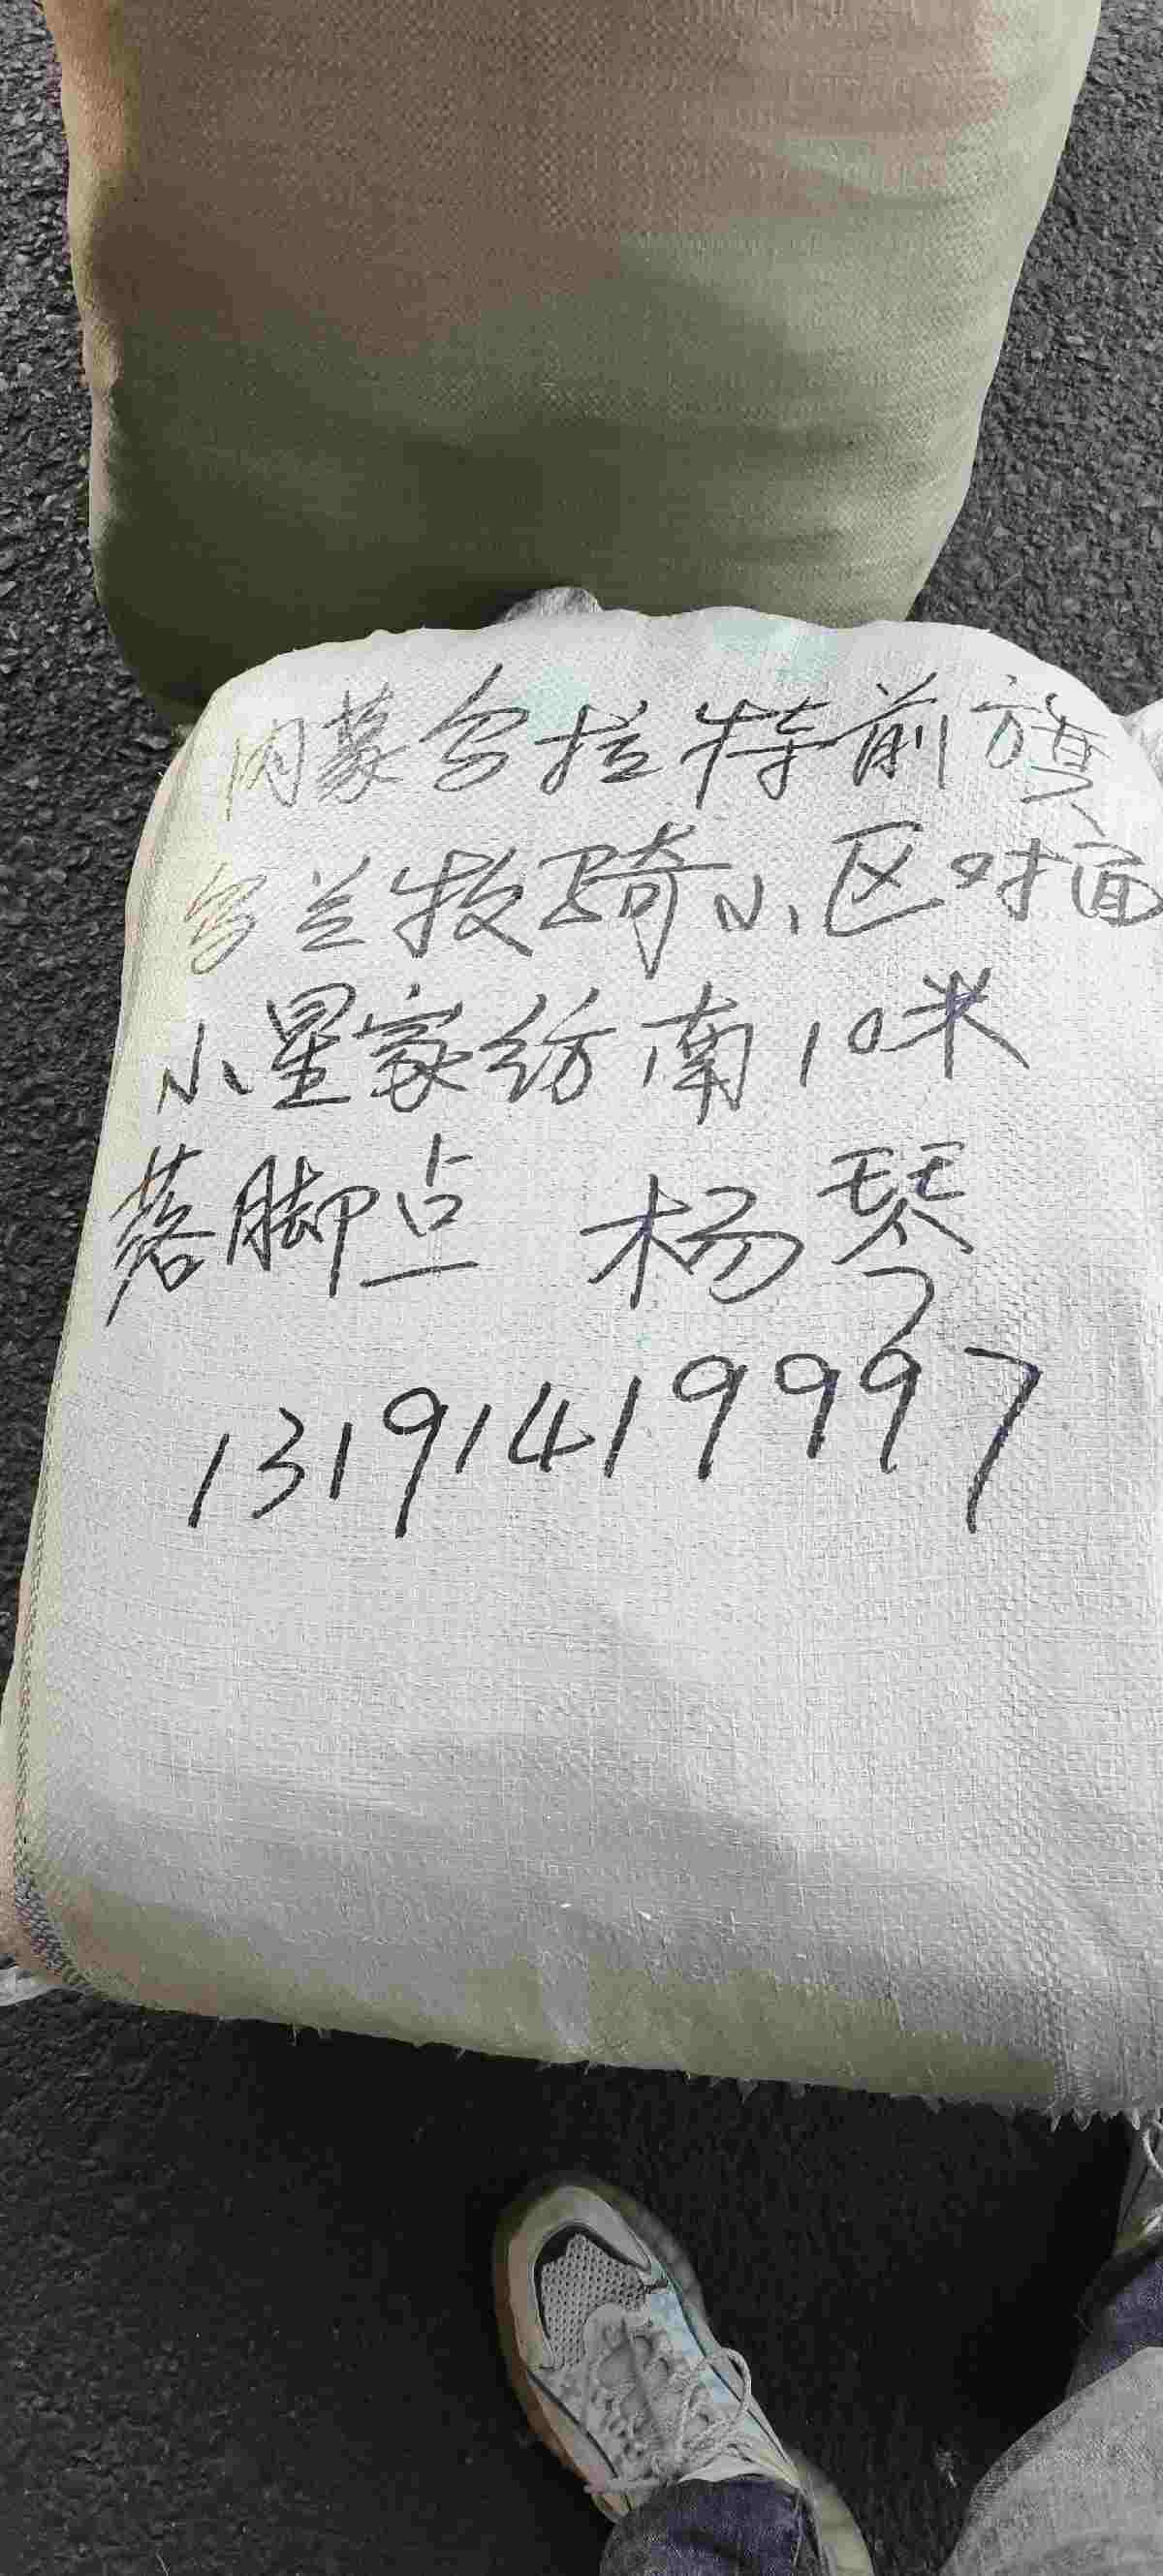 内蒙乌拉特前旗
乌兰牧骑小区对面
小星家纺南10米
落脚点 杨琴
13191419997